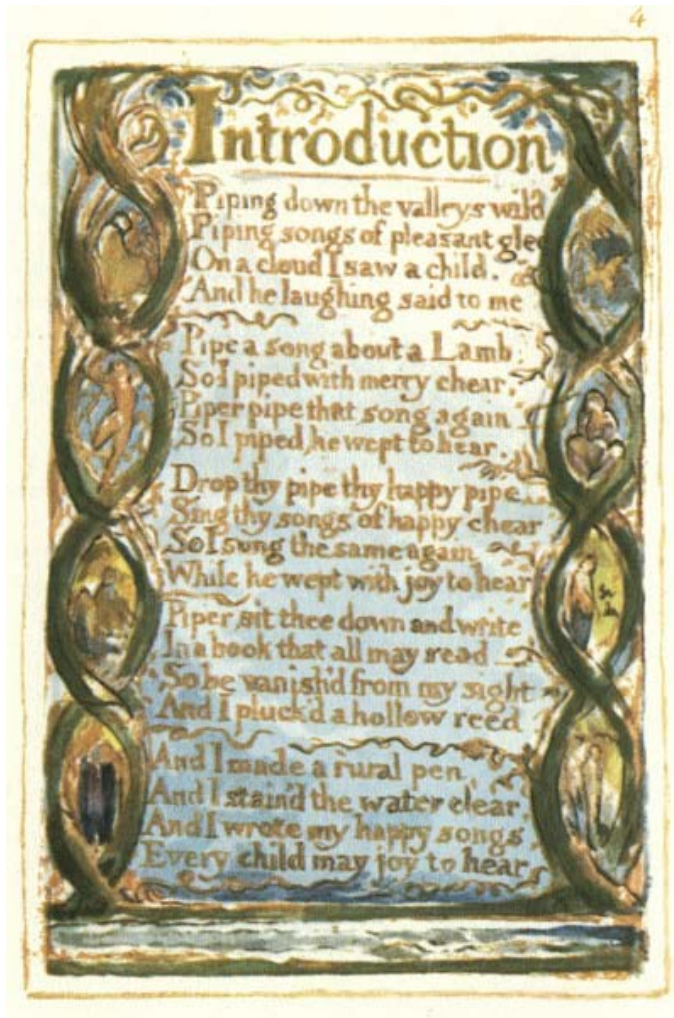 4
Introduction
Piping down the valleys wild
Piping songs of pleasant glee
On a cloud I saw a child.
And he laughing said to me
Pipe a song about a Lamb:
So I piped with merry chear,
Piper pipe that song again
So I piped, he wept to hear.
Drop thy pipe thy happy pipe
Sing thy songs of happy chear
So I sung the same again
While he wept with joy to hear
Piper sit thee down and write
In a book that all may read
So he vanish'd from my sight
And I pluck'd a hollow reed
And I made a rural pen,
And I stain'd the water clear
And I wrote my happy songs
Every child may joy to hear